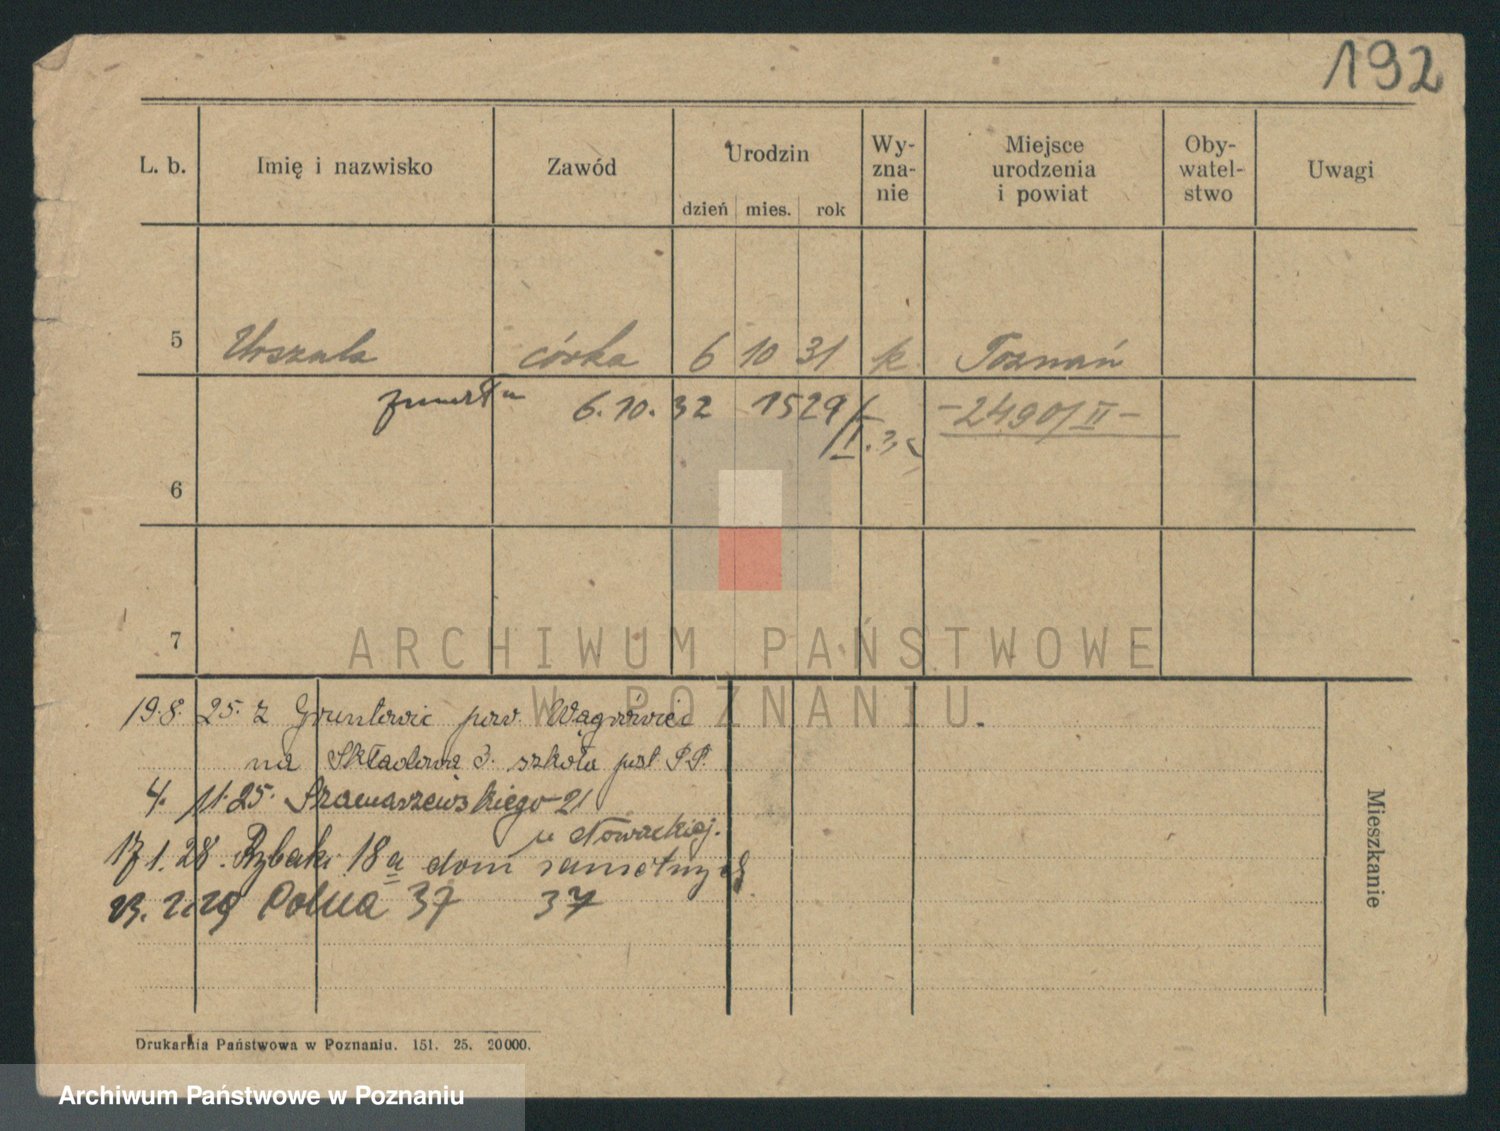 192
L. b. Imię i nazwisko Zawód Urodzin Wy-zna-nie Miejsce urodzenia i powiat Oby-watel-stwo Uwagi
dzień mies. rok
5 Urszula córka 6 10 31 k. Poznań
zmarła 6.10.32 1529/I -2490/II-
6
7
ARCHIWUM PAŃSTWOWE
W POZNANIU.
19.8. 25. z Gruntowic pow. Wągrówiec
na Składowa 3. szkoła
4. 11.25. Szamarzewskiego 21
u Nowackiej.
17.1.28. Rybaki 18a dom samotnych
Polna 37 37
Mieszkanie
Drukarnia Państwowa w Poznaniu. 151. 25. 20000.
Archiwum Państwowe w Poznaniu